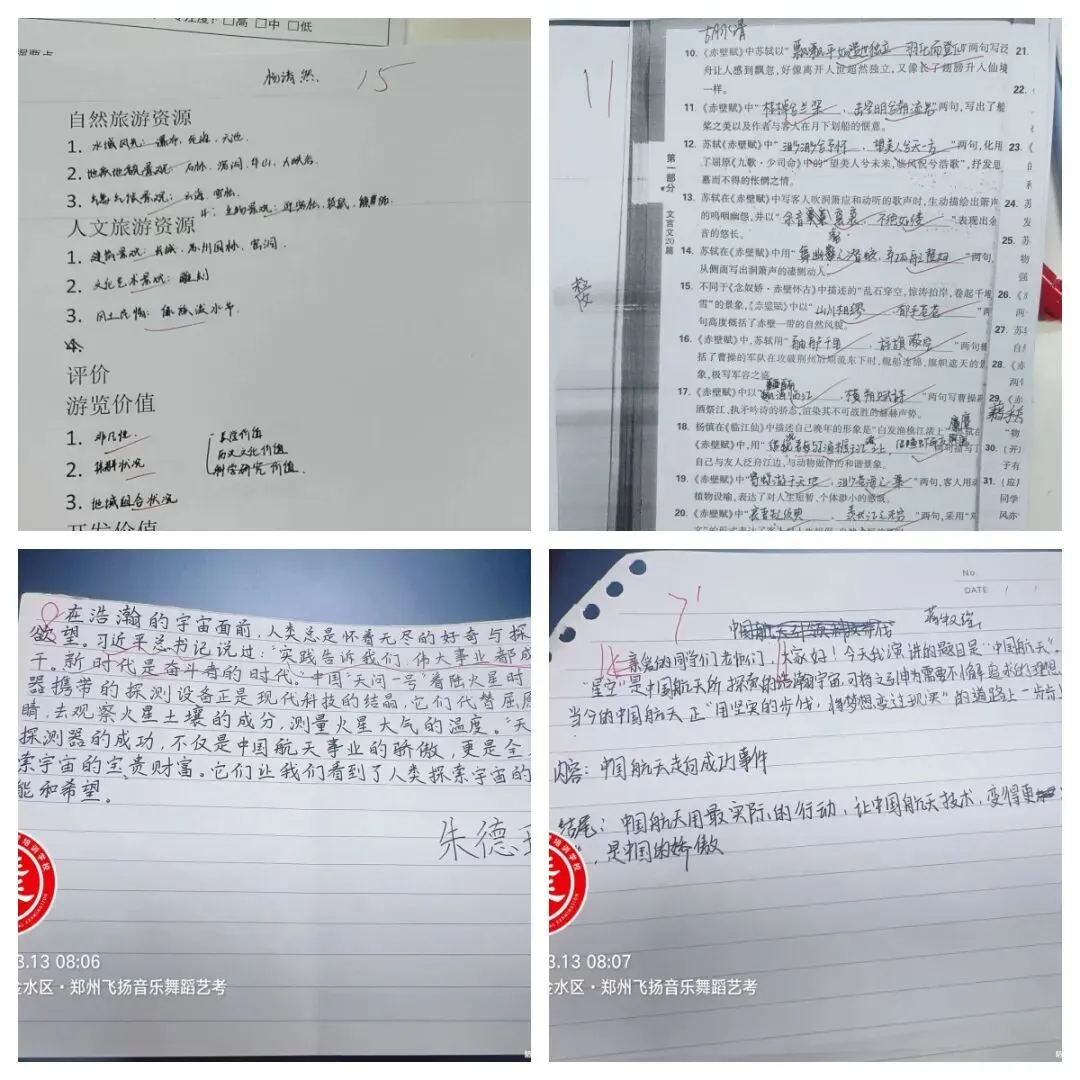 □高 □中 □低
15
自然旅游资源
1. 水域风光：瀑布、死海、天池
2. 地质地貌景观：石林、溶洞、华山、大峡谷
3. 云海、雪松
4：生物景观：
人文旅游资源
1. 建筑景观：长城、苏州园林、窑洞
2. 文化艺术景观：雕刻
3. 风土民情：傣族泼水节
评价
游览价值
1. 非凡性
2. 集群状况
3. 地域组合状况
美学价值
历史文化价值
科学研究价值
开发价值
11
第一部分
文言文20篇
10. 《赤壁赋》中苏轼以“飘飘乎如遗世独立，羽化而登仙”两句写泛
舟让人感到飘忽，好像离开人世超然独立，又像长了翅膀升入仙境
一样。
11. 《赤壁赋》中“桂棹兮兰桨，击空明兮溯流光”两句，写出了船
桨之美以及作者与客人在月下划船的惬意。
12. 苏轼《赤壁赋》中“渺渺兮予怀，望美人兮天一方”两句，化用
了屈原《九歌·少司命》中的“望美人兮未来，临风怳兮浩歌”，抒发思
慕而不得的怅惘之情。
13. 苏轼在《赤壁赋》中写客人吹洞箫应和动听的歌声时，生动描绘出箫声
的呜咽幽怨，并以“余音袅袅，不绝如缕”表现出余
音的悠长。
14. 苏轼在《赤壁赋》中用“舞幽壑之潜蛟，泣孤舟之嫠妇”两句，
从侧面写出洞箫声的凄恻动人。
15. 不同于《念奴娇·赤壁怀古》中描述的“乱石穿空，惊涛拍岸，卷起千堆
雪”的景象，《赤壁赋》中以“山川相缪，郁乎苍苍”两
句高度概括了赤壁一带的自然风貌。
16. 《赤壁赋》中，苏轼用“舳舻千里，旌旗蔽空”两句概
括了曹操的军队在攻破荆州后顺流东下时，舰船连绵，旗帜遮天的景
象，极写军容之盛。
17. 《赤壁赋》中以“酾酒临江，横槊赋诗”两句写曹操
酒祭江，执矛吟诗的骄态，渲染其不可战胜的赫赫声势。
18. 杨慎在《临江仙》中描述自己晚年的形象是“白发渔樵江渚上”，
《赤壁赋》中，用
自己与友人泛舟江边，与动物做伴的和谐景象。
19. 《赤壁赋》中“寄蜉蝣于天地，渺沧海之一粟”两句，客人用
植物设喻，表达了对人生短暂，个体渺小的感慨。
20. 《赤壁赋》中“哀吾生之须臾，羡长江之无穷”两句，采用“对
21.
22.
23.
24.
25.
26.
27.
28.
29.
30.
31.
在浩瀚的宇宙面前，人类总是怀着无尽的好奇与探
欲望。习近平总书记说过：“实践告诉我们，伟大事业都成
干。新时代是奋斗者的时代。”中国“天问一号”着陆火星时
器携带的探测设备正是现代科技的结晶，它们代替屈原
睛，去观察火星土壤的成分，测量火星大气的温度。“天
探测器的成功，不仅是中国航天事业的骄傲，更是全
索宇宙的宝贵财富。它们让我们看到了人类探索宇宙的
能和希望。
朱德
培训学校
3.13 08:06
金水区·郑州飞扬音乐舞蹈艺考
No.
DATE / /
7
亲爱的同学们老师们，大家好！今天我演讲的题目是“中国航天”。
“星空”是中国航天所探索的浩瀚宇宙，可将之引伸为需要不懈追求的理想，
当今的中国航天，正“用坚实的步伐，将梦想变过现实”的道路上一步前
内容：中国航天走向成功事件
结尾：中国航天用最实际的行动，让中国航天技术，变得更
，是中国的娇傲
培训学校
3.13 08:07
金水区·郑州飞扬音乐舞蹈艺考